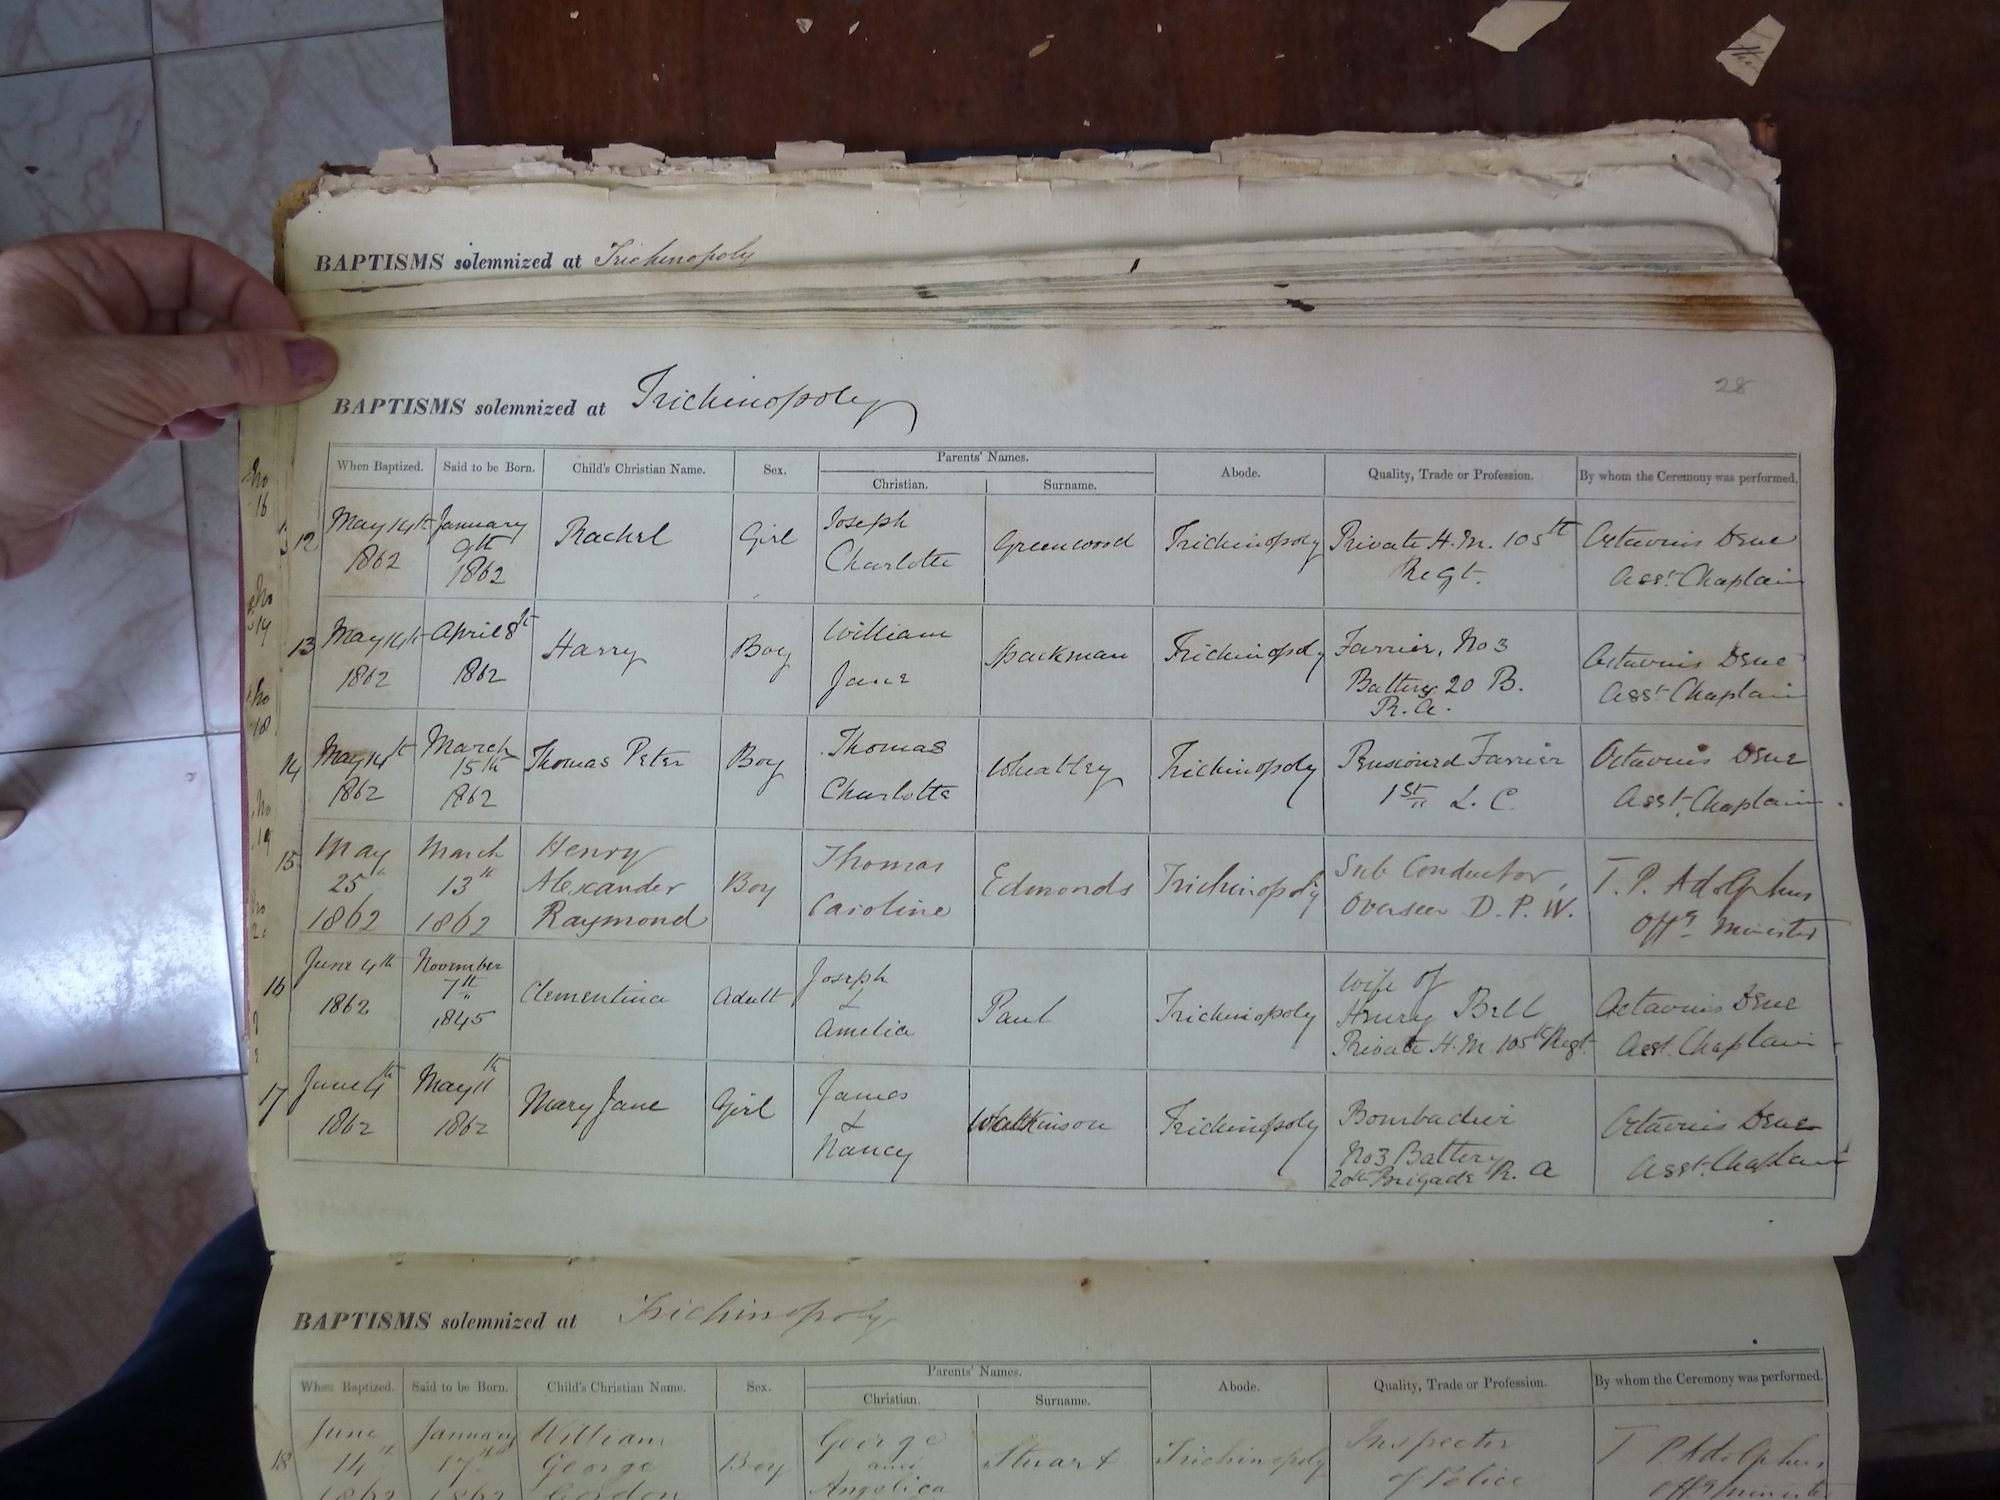 BAPTISMS solemnized at Trichinopoly
28
BAPTISMS solemnized at Trichinopoly
When Baptized. Said to be Born. Child's Christian Name. Sex. Parents' Names. Abode. Quality, Trade or Profession. By whom the Ceremony was performed.
Christian. Surname.
12 May 14th 1862 January 9th 1862 Rachel Girl Joseph Charlotte Greenwood Trichinopoly Private H. M. 105th Regt. Octavius Dene Asst. Chaplain
13 May 14th 1862 April 8th 1862 Harry Boy William Jane Spackman Trichinopoly Farrier, No 3 Battery 20 B. R. A. Octavius Dene Asst Chaplain
14 May 14th 1862 March 15th 1862 Thomas Peter Boy Thomas Charlotte Wheatley Trichinopoly Pensioned Farrier 1st L. C. Octavius Dene Asst. Chaplain
15 May 25th 1862 March 13th 1862 Henry Alexander Raymond Boy Thomas Caroline Edmonds Trichinopoly Sub Conductor, Overseer D. P. W. T. P. Adolphus Offg Minister
16 June 4th 1862 November 7th 1845 Clementina Adult Joseph & Amelia Paul Trichinopoly Wife of Henry Bell Private H. M. 105th Regt. Octavius Dene Asst. Chaplain
17 June 4th 1862 May 11th 1862 Mary Jane Girl James & Nancy Watkinson Trichinopoly Bombadier No 3 Battery 20th Brigade R. A Octavius Dene Asst. Chaplain
BAPTISMS solemnized at Trichinopoly
When Baptized. Said to be Born. Child's Christian Name. Sex. Parents' Names. Abode. Quality, Trade or Profession. By whom the Ceremony was performed.
Christian. Surname.
18 June 14th 1862 January 17th 1862 William George Gordon Boy George and Angelica Stuart Trichinopoly Inspector of Police T. P. Adolphus Offg Minister